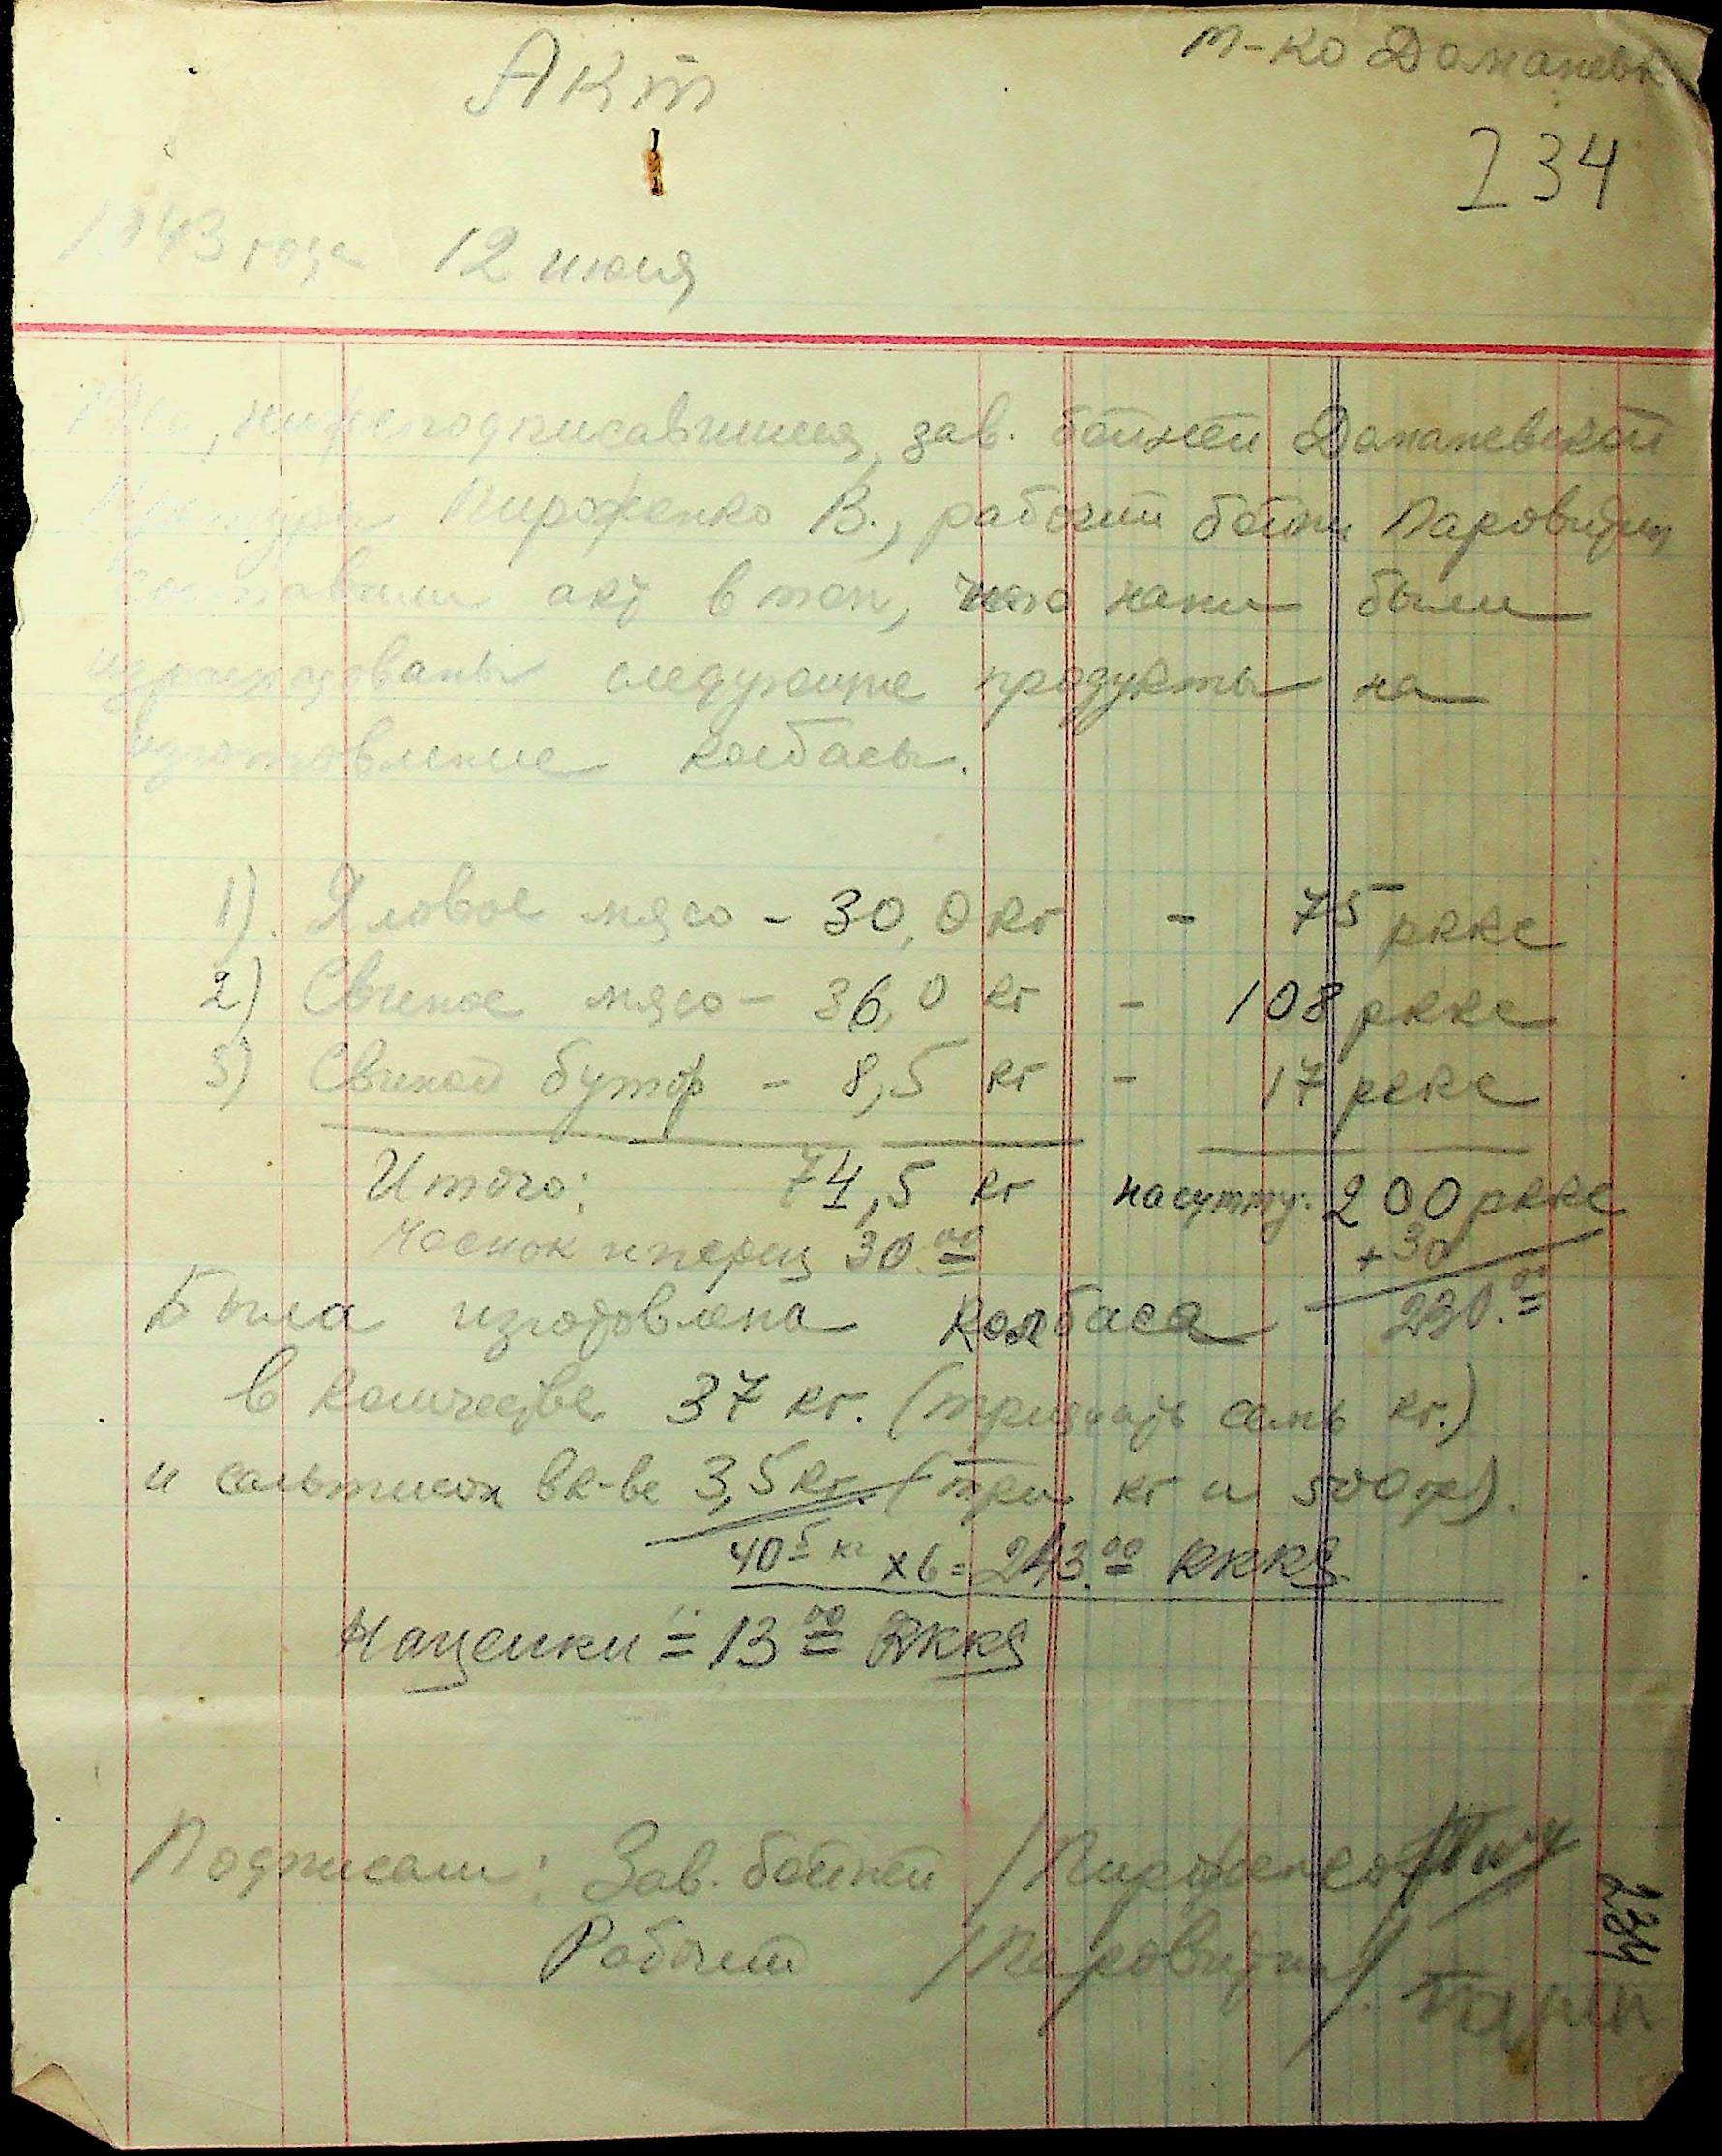 м-ко Доманевк
Акт
234
1943 года 12 июня
Мы, нижеподписавшиеся, зав. бойней Доманевской
Пироженко В., рабочий бойни Паровидин
составили акт в том, что нами были
израсходованы следующие продукты на
изготовление колбасы.
1) Яловое мясо - 30,0 кг - 75 рккс
2) Свиное мясо - 36,0 кг - 108 рккс
3) Свиной бутор - 8,5 кг - 17 рккс
Итого: 74,5 кг на сумму: 200 рккс
Чеснок и перец 30.00 +30
Была изготовлена колбаса 230.00
в количестве 37 кг. (тридцать семь кг.)
и сальтисон в к-ве 3,5 кг. (три кг и 500 гр).
40 5 кг x 6 = 243.00 RKKS
Наценки = 13 00 RKKS
Подписали: Зав. бойней /Пироженко/
Рабочий /Паровидин/
234